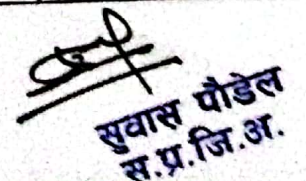 सुवास पौडेल
स.प्र.जि.अ.